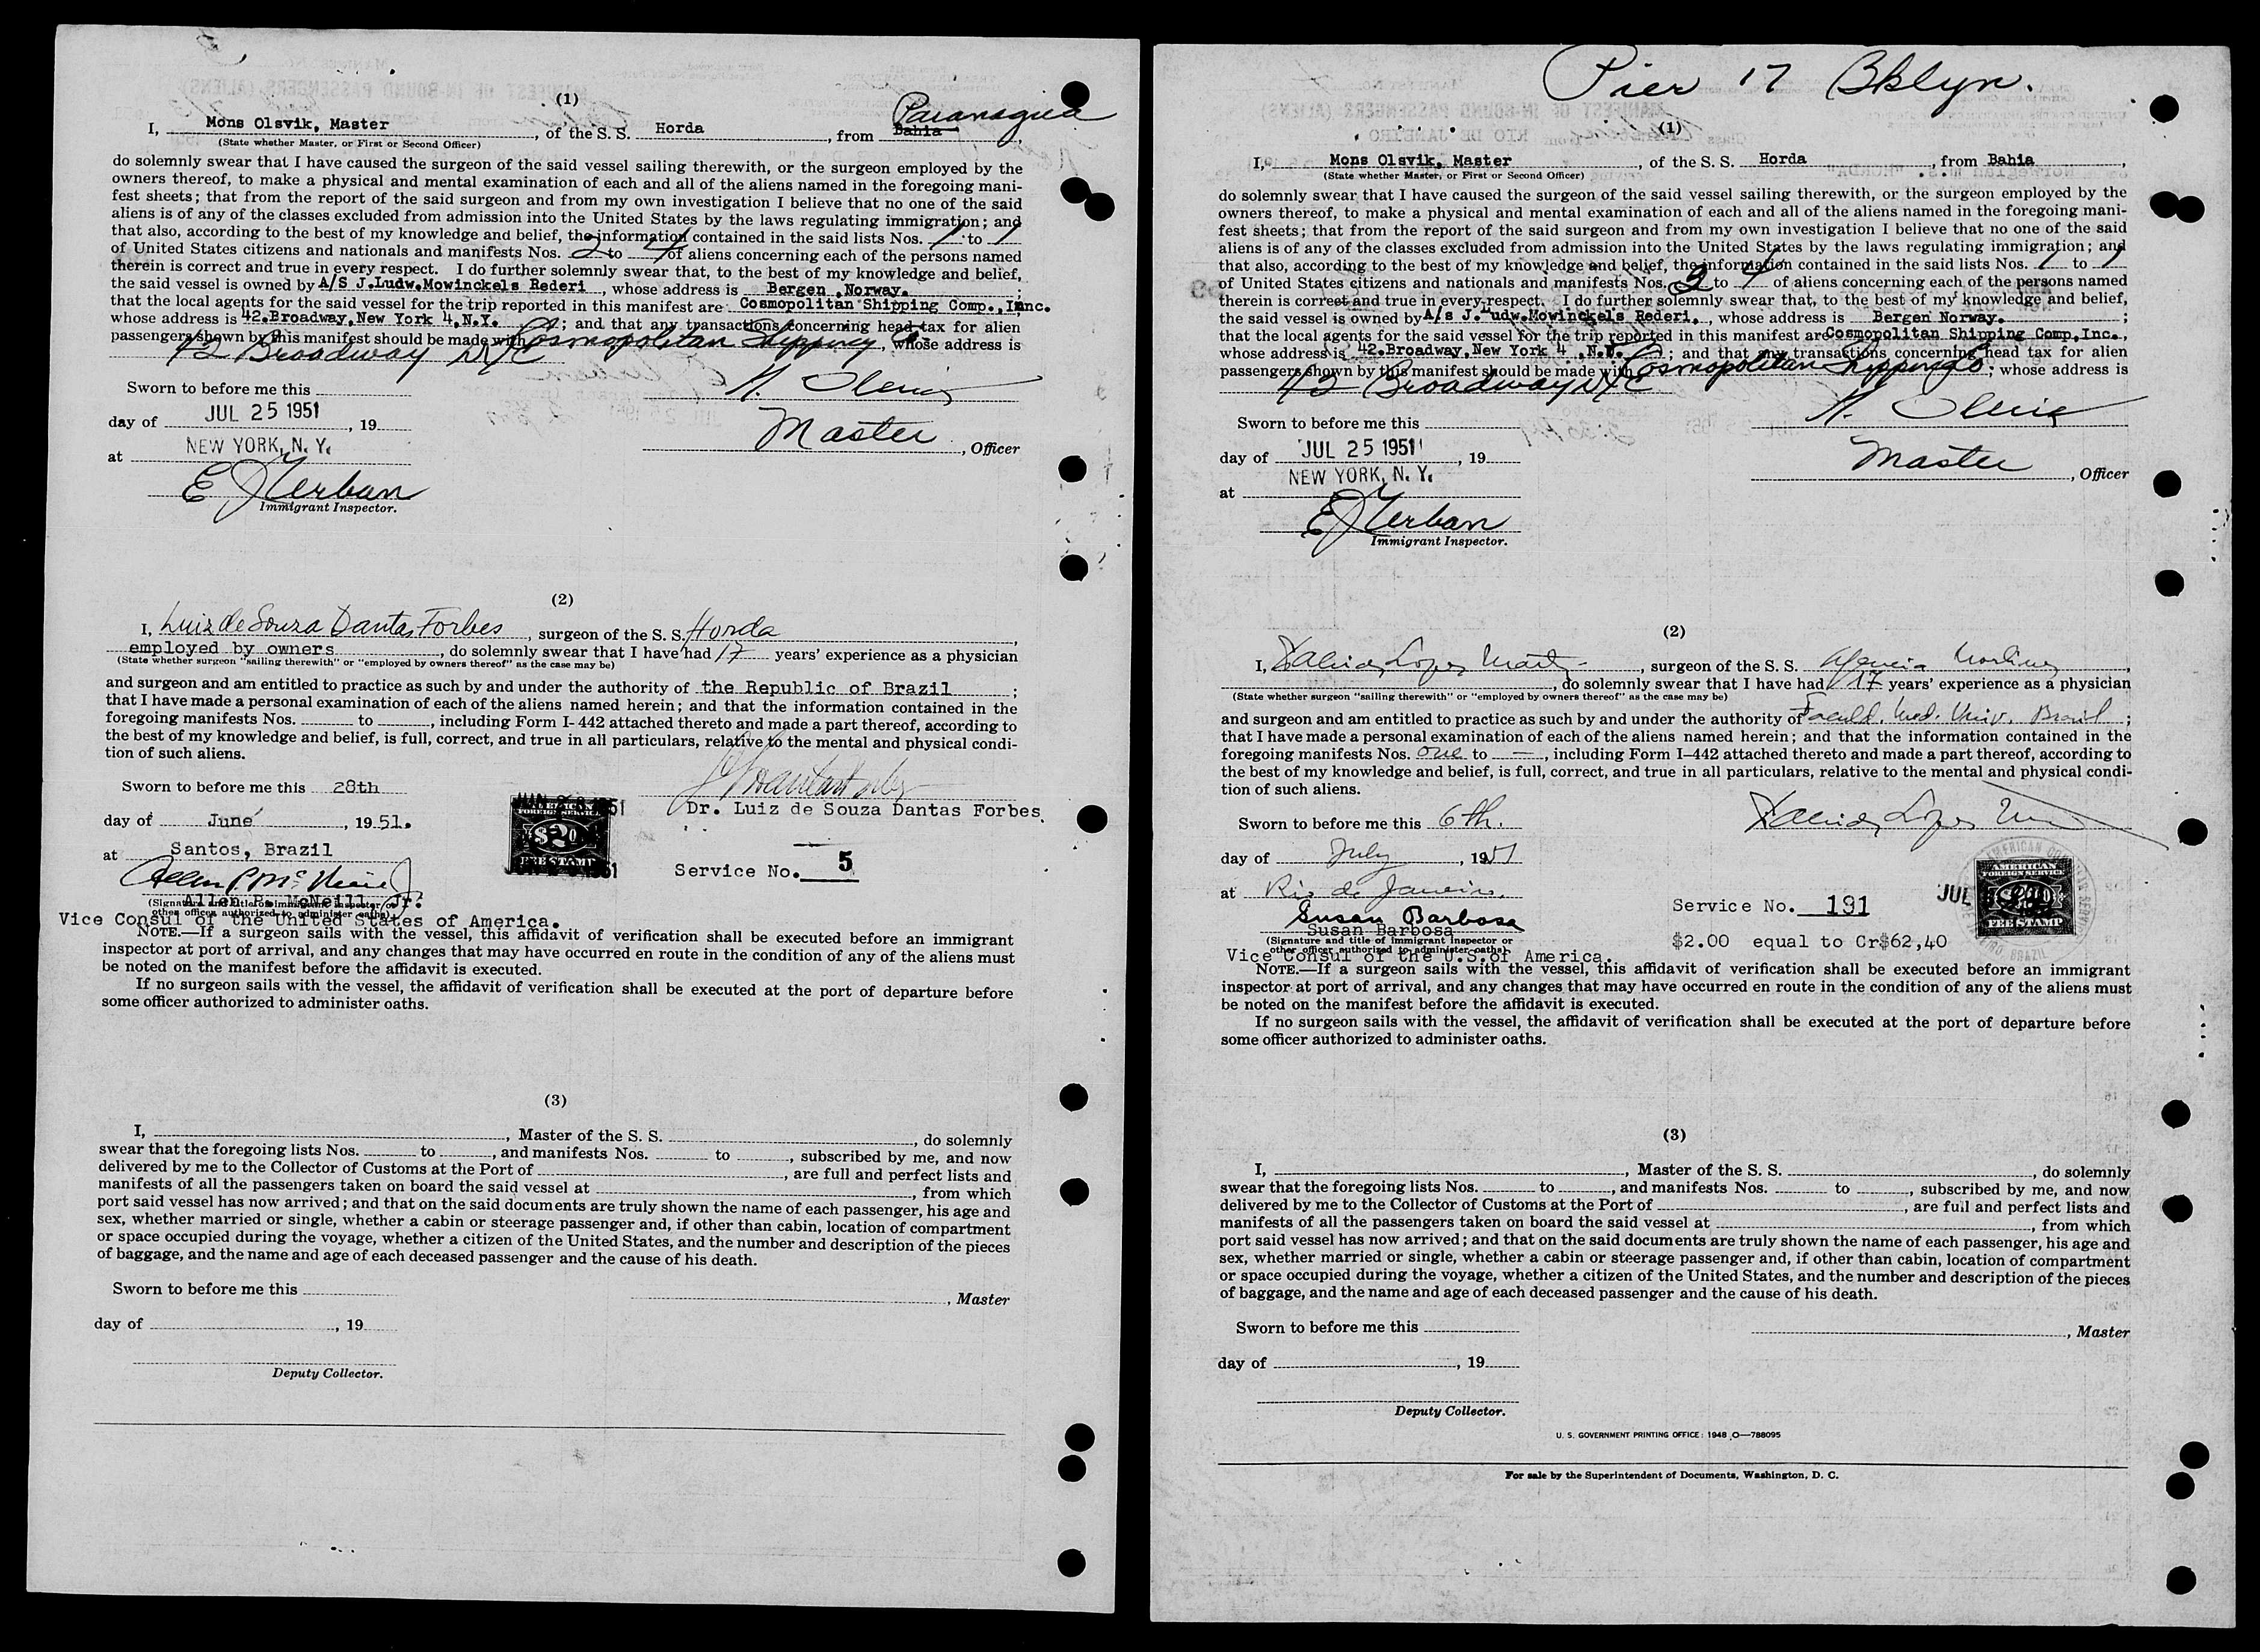 (1)
Paranagua
I, Mons Olsvik, Master, of the S. S. Horda, from Bahia,
(State whether Master, or First or Second Officer)
do solemnly swear that I have caused the surgeon of the said vessel sailing therewith, or the surgeon employed by the
owners thereof, to make a physical and mental examination of each and all of the aliens named in the foregoing mani-
fest sheets; that from the report of the said surgeon and from my own investigation I believe that no one of the said
aliens is of any of the classes excluded from admission into the United States by the laws regulating immigration; and
that also, according to the best of my knowledge and belief, the information contained in the said lists Nos. 1 to 1
of United States citizens and nationals and manifests Nos. 2 to 4 of aliens concerning each of the persons named
therein is correct and true in every respect. I do further solemnly swear that, to the best of my knowledge and belief,
the said vessel is owned by A/S J.Ludw.Mowinckels Rederi, whose address is Bergen, Norway. ;
that the local agents for the said vessel for the trip reported in this manifest are Cosmopolitan Shipping Comp., Inc.
whose address is 42.Broadway,New York 4,N.Y. ; and that any transactions concerning head tax for alien
passengers shown by this manifest should be made with Cosmopolitan Shipping Co., whose address is
42 Broadway NYC
Sworn to before me this
day of JUL 25 1951, 19
Master, Officer
at NEW YORK, N. Y.
E J Urban
Immigrant Inspector.
(2)
I, Luiz de Souza Dantas Forbes, surgeon of the S. S. Horda,
employed by owners, do solemnly swear that I have had 17 years' experience as a physician
(State whether surgeon "sailing therewith" or "employed by owners thereof" as the case may be)
and surgeon and am entitled to practice as such by and under the authority of the Republic of Brazil ;
that I have made a personal examination of each of the aliens named herein; and that the information contained in the
foregoing manifests Nos. to , including Form I-442 attached thereto and made a part thereof, according to
the best of my knowledge and belief, is full, correct, and true in all particulars, relative to the mental and physical condi-
tion of such aliens.
Sworn to before me this 28th
Dr. Luiz de Souza Dantas Forbes.
day of June, 1951.
AMERICAN
FOREIGN SERVICE
$2.0
FEE STAMP
at Santos, Brazil
Service No. 5
Allen P. McNeill, Jr.
(Signature and title of immigrant inspector or
other officer authorized to administer oaths)
Vice Consul of the United States of America.
NOTE.—If a surgeon sails with the vessel, this affidavit of verification shall be executed before an immigrant
inspector at port of arrival, and any changes that may have occurred en route in the condition of any of the aliens must
be noted on the manifest before the affidavit is executed.
If no surgeon sails with the vessel, the affidavit of verification shall be executed at the port of departure before
some officer authorized to administer oaths.
(3)
I, , Master of the S. S. , do solemnly
swear that the foregoing lists Nos. to , and manifests Nos. to , subscribed by me, and now
delivered by me to the Collector of Customs at the Port of , are full and perfect lists and
manifests of all the passengers taken on board the said vessel at , from which
port said vessel has now arrived; and that on the said documents are truly shown the name of each passenger, his age and
sex, whether married or single, whether a cabin or steerage passenger and, if other than cabin, location of compartment
or space occupied during the voyage, whether a citizen of the United States, and the number and description of the pieces
of baggage, and the name and age of each deceased passenger and the cause of his death.
Sworn to before me this
, Master
day of , 19
Deputy Collector.
Pier 17 Bklyn.
(1)
I, Mons Olsvik, Master, of the S. S. Horda, from Bahia,
(State whether Master, or First or Second Officer)
do solemnly swear that I have caused the surgeon of the said vessel sailing therewith, or the surgeon employed by the
owners thereof, to make a physical and mental examination of each and all of the aliens named in the foregoing mani-
fest sheets; that from the report of the said surgeon and from my own investigation I believe that no one of the said
aliens is of any of the classes excluded from admission into the United States by the laws regulating immigration; and
that also, according to the best of my knowledge and belief, the information contained in the said lists Nos. 1 to 1
of United States citizens and nationals and manifests Nos. 2 to 4 of aliens concerning each of the persons named
therein is correct and true in every respect. I do further solemnly swear that, to the best of my knowledge and belief,
the said vessel is owned by A/s J. Ludw.Mowinckels Rederi., whose address is Bergen Norway. ;
that the local agents for the said vessel for the trip reported in this manifest are Cosmopolitan Shipping Comp,Inc.,
whose address is 42.Broadway,New York 4 ,N.Y. ; and that any transactions concerning head tax for alien
passengers shown by this manifest should be made with Cosmopolitan Shipping Co; whose address is
42 Broadway NYC
Sworn to before me this
day of JUL 25 1951, 19
Master, Officer
at NEW YORK, N. Y.
E J Urban
Immigrant Inspector.
(2)
I, Lopes , surgeon of the S. S. ,
, do solemnly swear that I have had 17 years' experience as a physician
(State whether surgeon "sailing therewith" or "employed by owners thereof" as the case may be)
and surgeon and am entitled to practice as such by and under the authority of Faculd. Med. Univ. Brasil ;
that I have made a personal examination of each of the aliens named herein; and that the information contained in the
foregoing manifests Nos. one to — , including Form I-442 attached thereto and made a part thereof, according to
the best of my knowledge and belief, is full, correct, and true in all particulars, relative to the mental and physical condi-
tion of such aliens.
Sworn to before me this 6th.
day of July, 1951
at Rio de Janeiro.
AMERICAN
FOREIGN SERVICE
FEE STAMP
JUL
Service No. 191
Susan Barbosa
Susan Barbosa
$2.00 equal to Cr$62,40
(Signature and title of immigrant inspector or
other officer authorized to administer oaths)
Vice Consul of the U.S.of America.
NOTE.—If a surgeon sails with the vessel, this affidavit of verification shall be executed before an immigrant
inspector at port of arrival, and any changes that may have occurred en route in the condition of any of the aliens must
be noted on the manifest before the affidavit is executed.
If no surgeon sails with the vessel, the affidavit of verification shall be executed at the port of departure before
some officer authorized to administer oaths.
(3)
I, , Master of the S. S. , do solemnly
swear that the foregoing lists Nos. to , and manifests Nos. to , subscribed by me, and now
delivered by me to the Collector of Customs at the Port of , are full and perfect lists and
manifests of all the passengers taken on board the said vessel at , from which
port said vessel has now arrived; and that on the said documents are truly shown the name of each passenger, his age and
sex, whether married or single, whether a cabin or steerage passenger and, if other than cabin, location of compartment
or space occupied during the voyage, whether a citizen of the United States, and the number and description of the pieces
of baggage, and the name and age of each deceased passenger and the cause of his death.
Sworn to before me this
, Master
day of , 19
Deputy Collector.
U. S. GOVERNMENT PRINTING OFFICE: 1948 O—788095
For sale by the Superintendent of Documents, Washington, D. C.